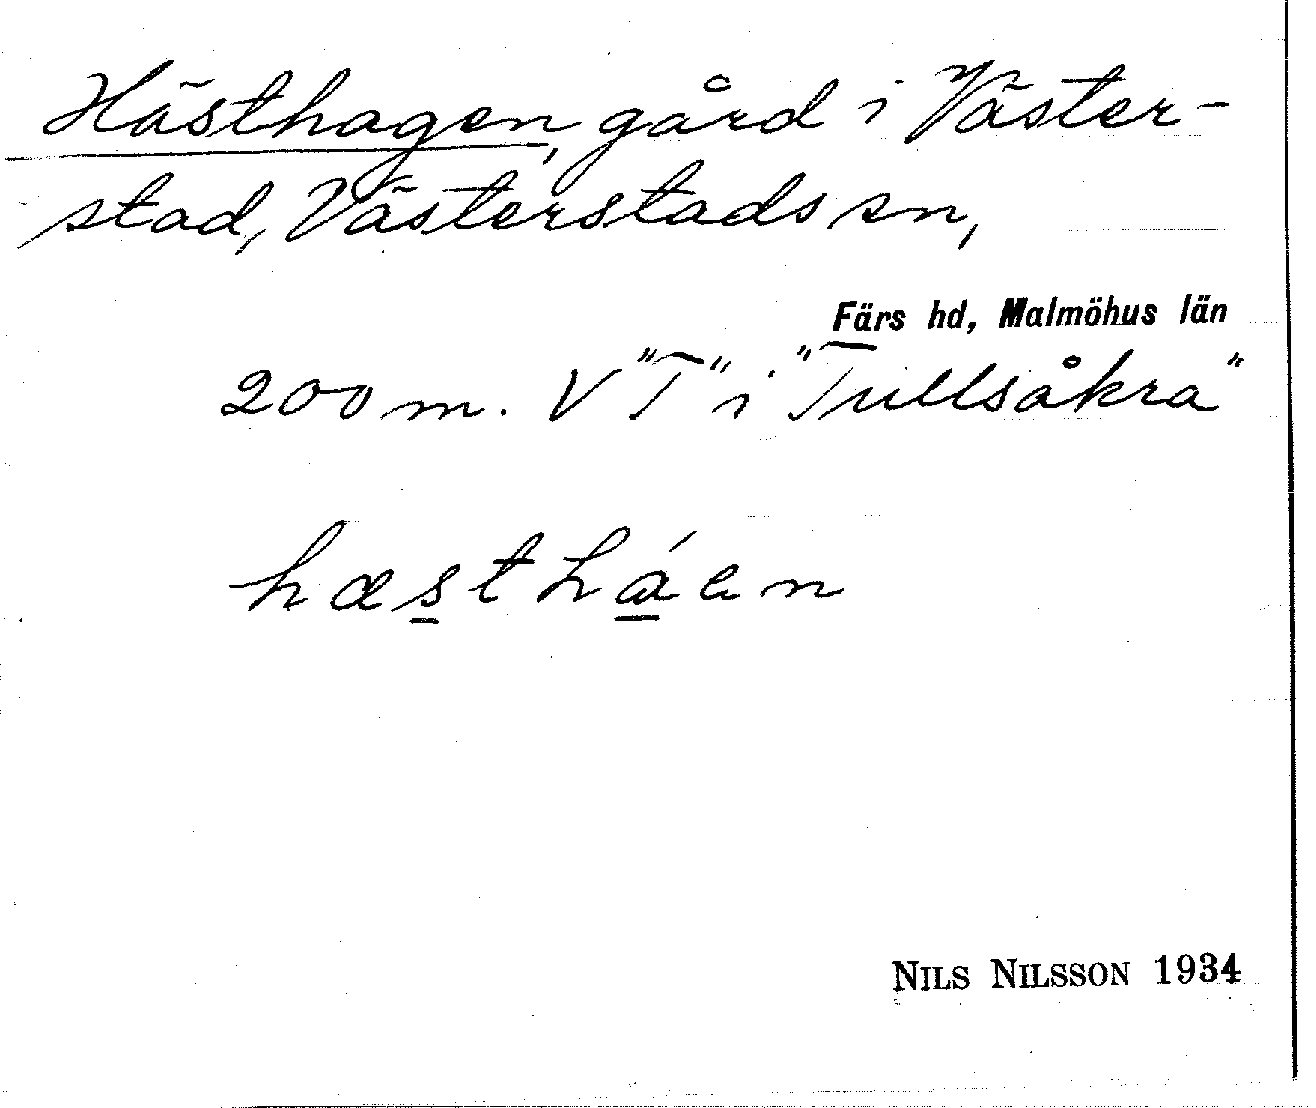 Hästhagen, gård i Väster-
stad, Västerstads sn,
Färs hd, Malmöhus län
200 m. V "T" i "Tullsåkra"
hæstháen
NILS NILSSON 1934